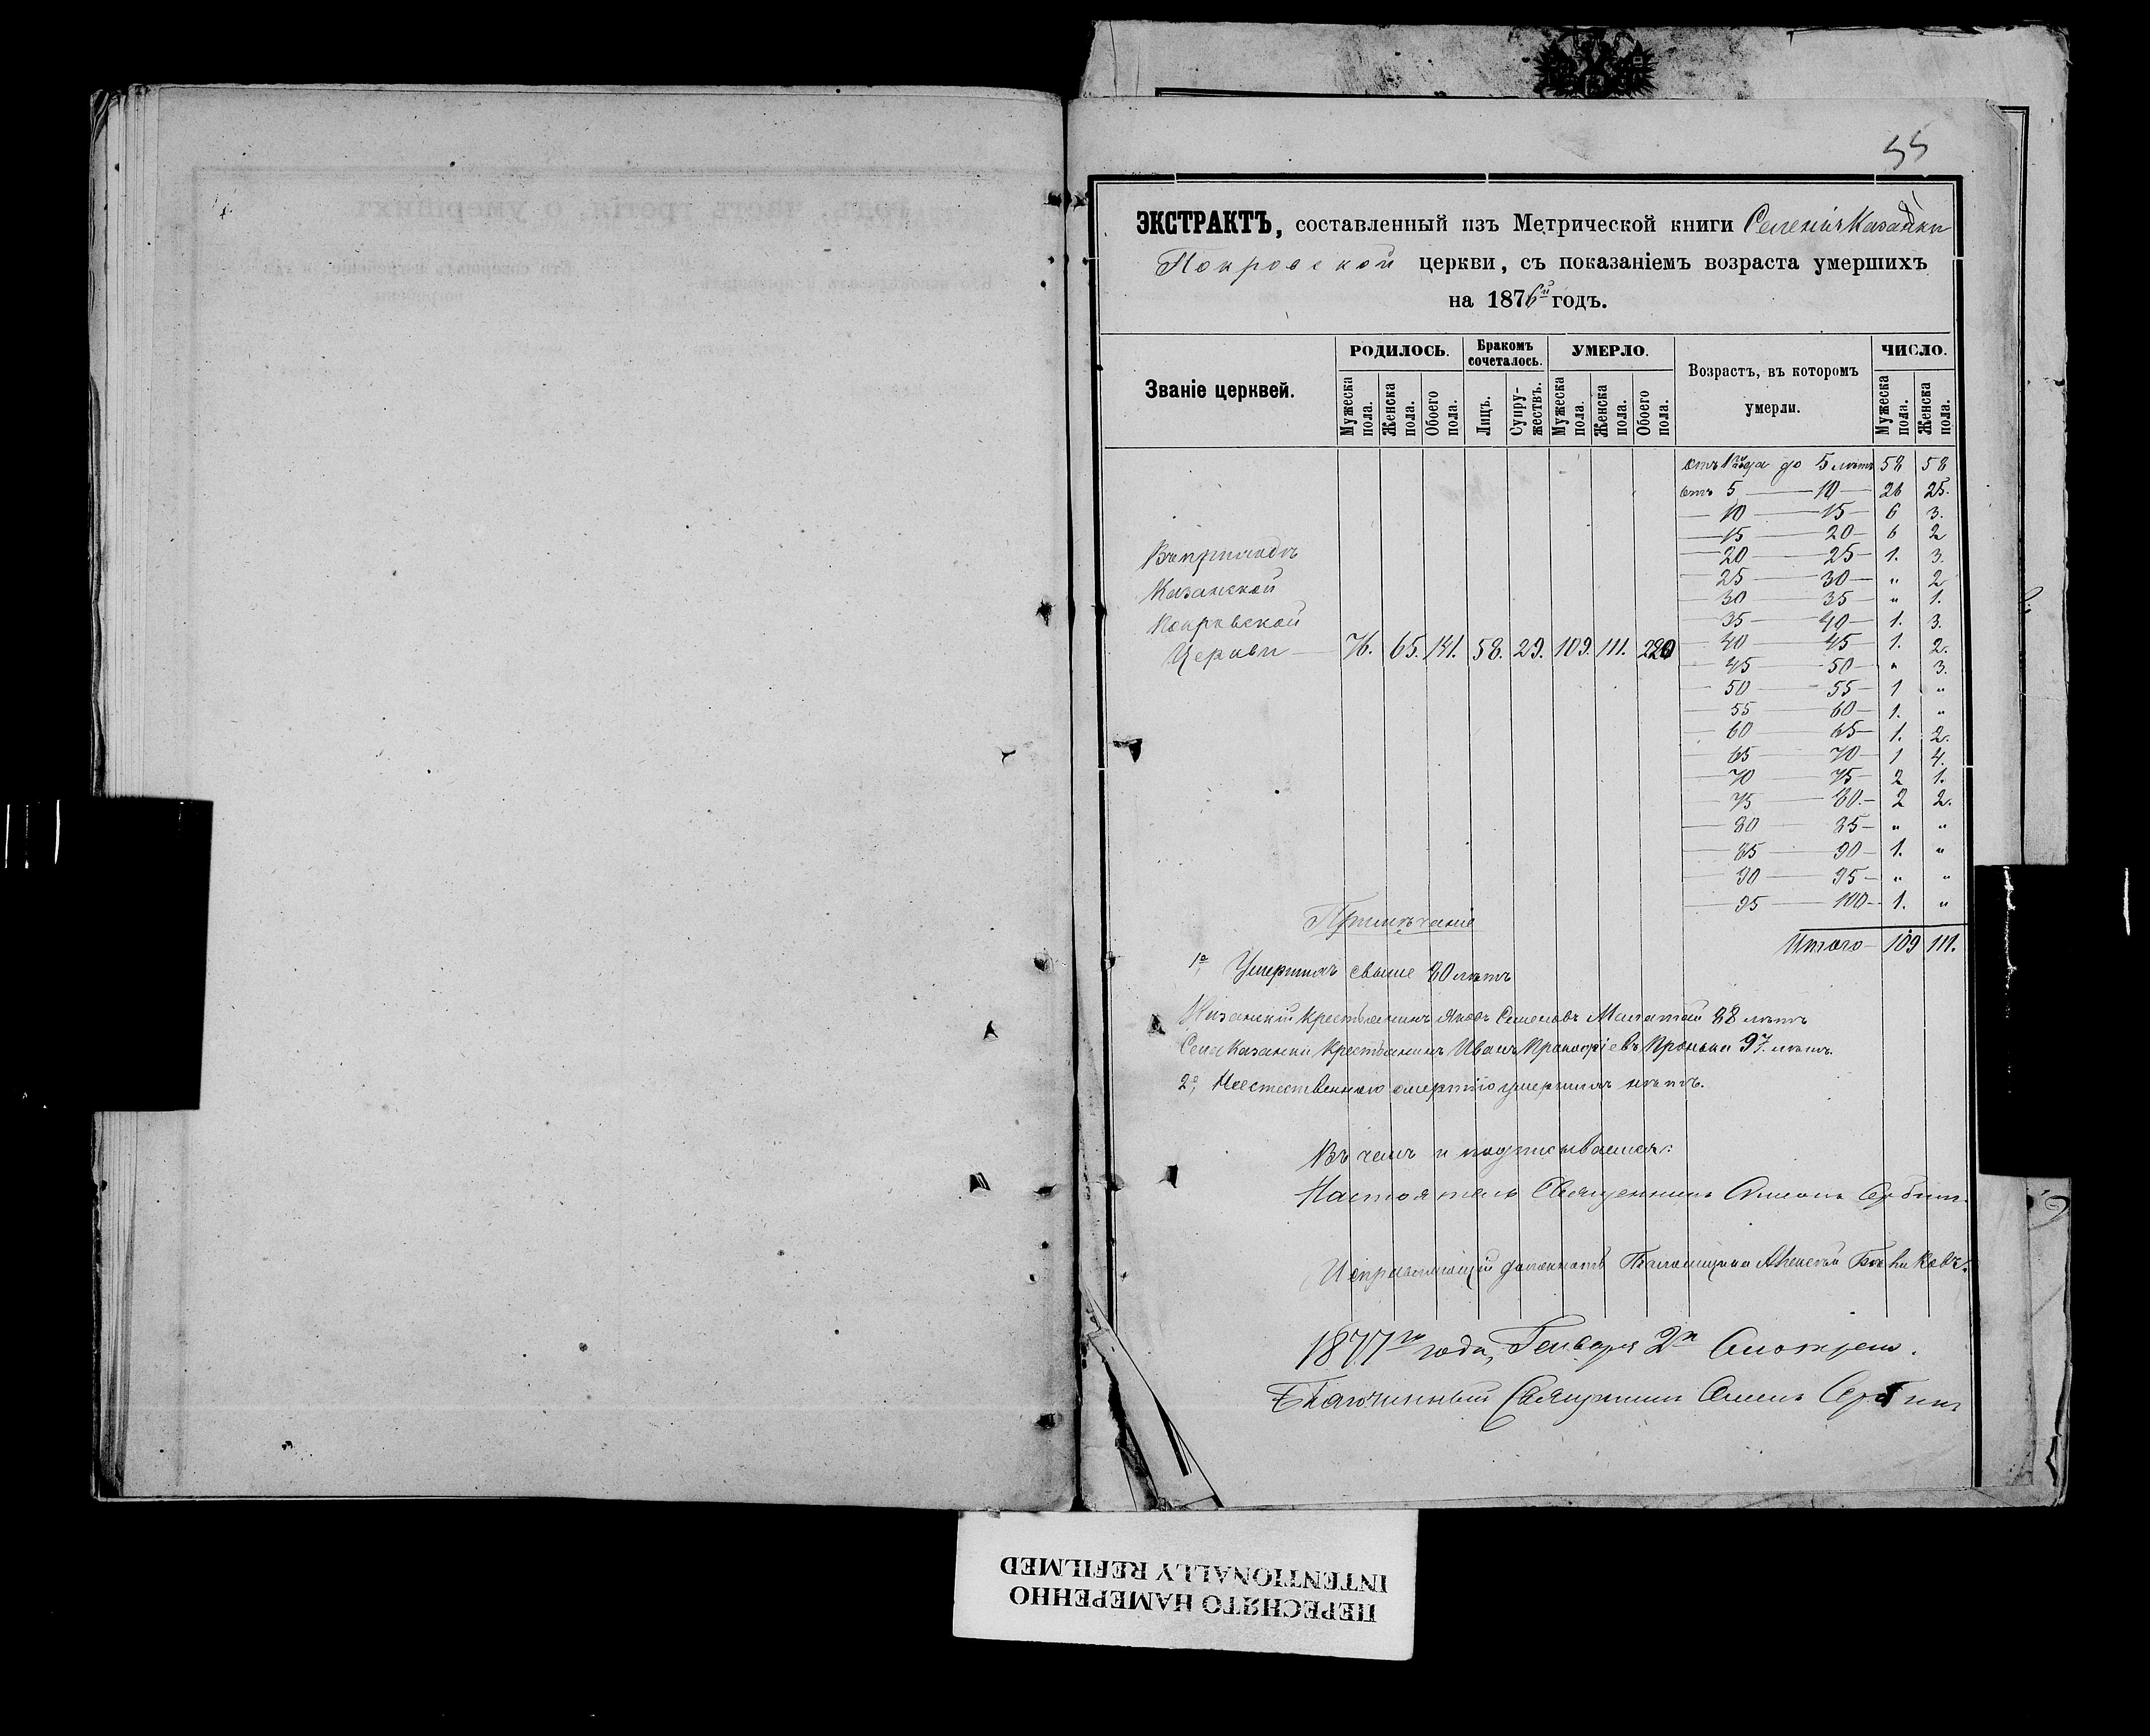 55
ЭКСТРАКТЪ, составленный изъ Метрической книги Селенія Казанки
Покровской церкви, съ показаніемъ возраста умершихъ
на 1876й годъ.
Званіе церквей.
РОДИЛОСЬ.
Мужеска пола.
Женска пола.
Обоего пола.
Бракомъ сочеталось.
Лицъ.
Супружествъ.
УМЕРЛО.
Мужеска пола.
Женска пола.
Обоего пола.
Возрастъ, въ которомъ умерли.
ЧИСЛО.
Мужеска пола.
Женска пола.
отъ 1го года до 5 лѣтъ 58 58
отъ 5 — 10 — 26 25.
— 10 — 15 — 6 3.
— 15 — 20 — 6 2
— 20 — 25 — 1. 3.
— 25 — 30 — " 2
— 30 — 35 — " 1.
— 35 — 40 — 1. 3.
— 40 — 45 — 1. 2.
— 45 — 50 — " 3.
— 50 — 55 — 1 "
— 55 — 60 — 1. "
— 60 — 65 — 1. 2.
— 65 — 70 — 1 4.
— 70 — 75 — 2 1.
— 75 — 80. — 2 2.
— 80 — 85 — " "
— 85 — 90 — 1. "
— 90 — 95 — " "
— 95 — 100 — 1. "
Итого — 109 111.
Въ приходѣ
Казанской
Покровской
Церкви — 76. 65. 141. 58. 29. 109. 111. 220
Примѣчаніе
1е, Умершихъ свыше 80 лѣтъ
Казанскій Крестьянинъ Яковъ Семеновъ 88 лѣтъ
Села Казанки Крестьянинъ Иванъ Прокофіевъ Пронька 97 лѣтъ.
2е, Неестественною смертію умершихъ нѣтъ.
Въ чемъ и подписываемся:
Настоятель Священникъ Симеонъ Сербинъ
Исправляющій должность Псаломщика Алексѣй
1877го года, Генваря 2я Смотрелъ.
Благочинный Священникъ Симеонъ Сербинъ
ПЕРЕСНЯТО НАМЕРЕННО
INTENTIONALLY REFILMED